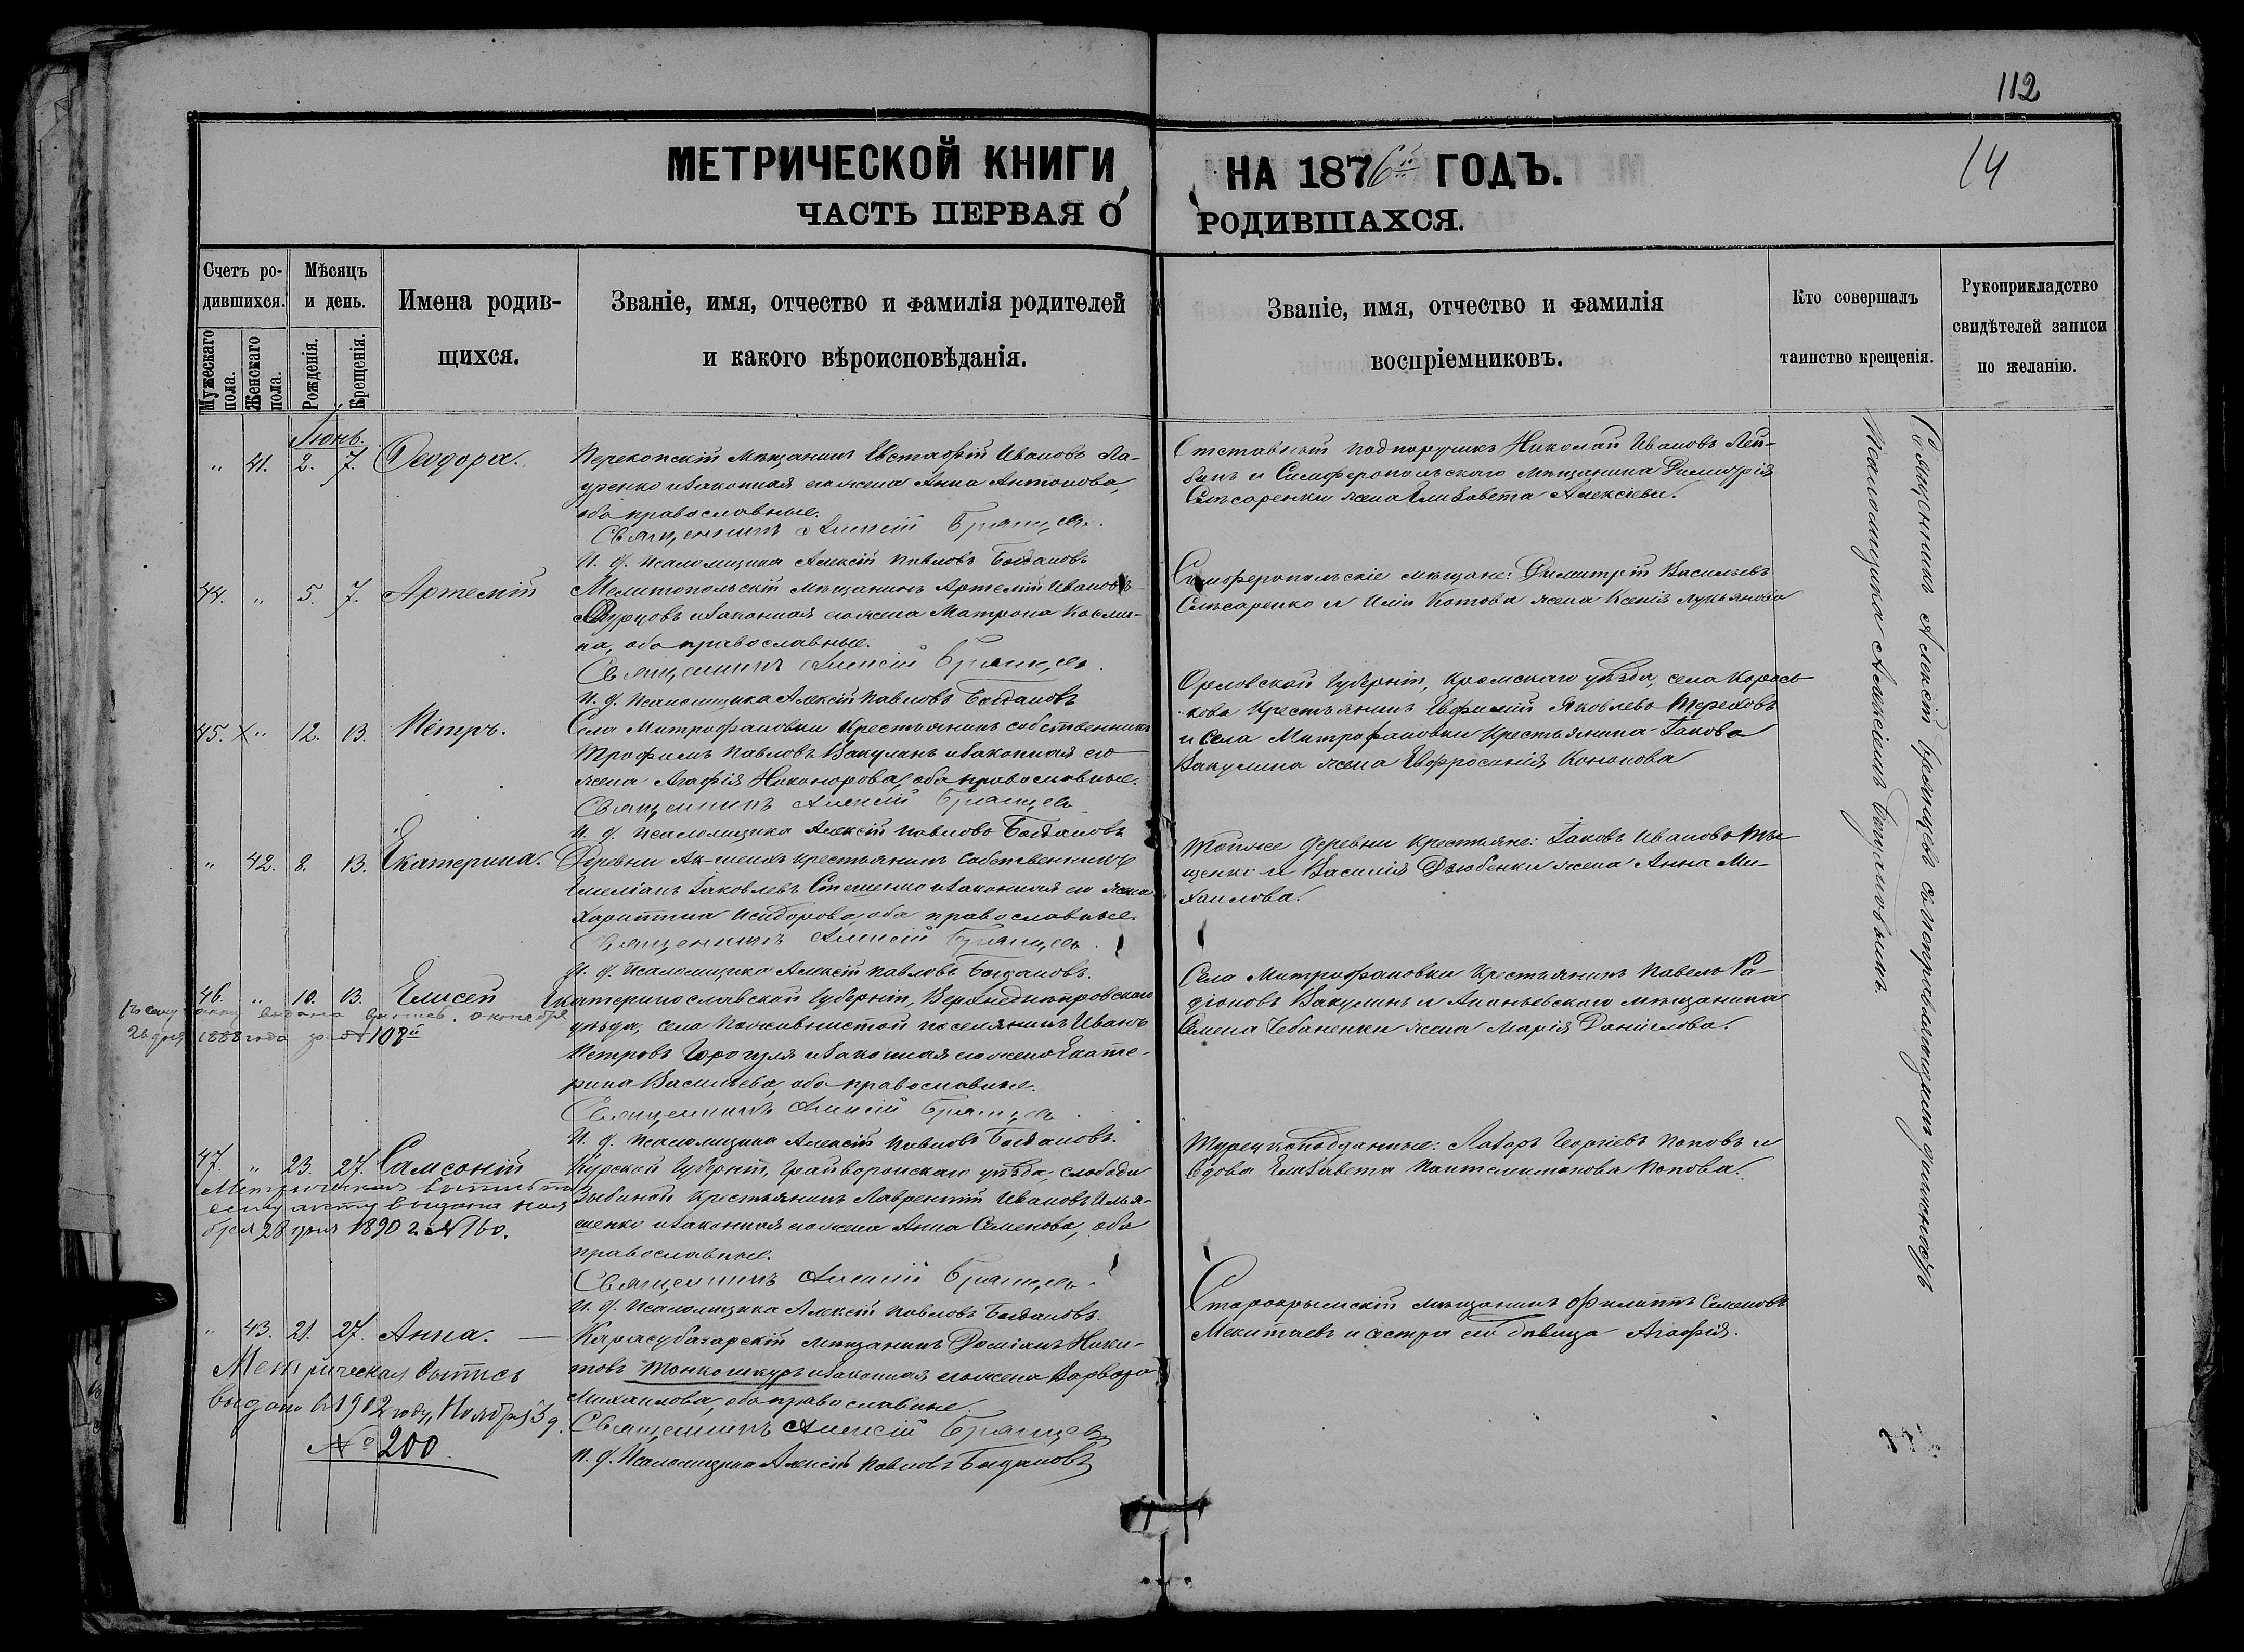 112
14
МЕТРИЧЕСКОЙ КНИГИ
НА 1876й ГОДЪ.
ЧАСТЬ ПЕРВАЯ О
РОДИВШАХСЯ.
Счетъ ро-
дившихся.
Мужескаго
пола.
Женскаго
пола.
Мѣсяцъ
и день.
Рожденія.
Крещенія.
Имена родив-
щихся.
Званіе, имя, отчество и фамилія родителей
и какого вѣроисповѣданія.
Званіе, имя, отчество и фамилія
воспріемниковъ.
Кто совершалъ
таинство крещенія.
Рукоприкладство
свидѣтелей записи
по желанію.
Іюнь.
" 41. 2. 7. Ѳеодора.
Перекопскій мѣщанинъ Евстафій Ивановъ Ла-
уренко и законная его жена Анна Антонова,
оба православные.
Священникъ Алексій Брянцевъ.
И. д. псаломщика Алексій Павловъ Богдановъ
Отставный подпоручикъ Николай Ивановъ Лей-
банъ и Симферопольскаго мѣщанина Димитрія
Слѣсаренки жена Елизавета Алексіева.
44. " 5. 7. Артемій
Мелитопольскій мѣщанинъ Артемій Ивановъ
и законная его жена Матрона Косми-
на, оба православные.
Священникъ Алексій Брянцевъ.
И. д. псаломщика Алексій Павловъ Богдановъ
Симферопольскіе мѣщане: Димитрій Васильевъ
Слѣсаренко и Иліи Котова жена Ксенія Лукьянова
45. X " 12. 13. Петръ.
Села Митрофановки крестьянинъ собственникъ
Трофимъ Павловъ Вакулинъ и законная его
жена Агафія Никонорова, оба православные.
Священникъ Алексій Брянцевъ
И. д. псаломщика Алексій Павловъ Богдановъ
Орловской губерніи, Кромскаго уѣзда, села Корось-
кова крестьянинъ Евфимій Яковлевъ Тереховъ
и села Митрофановки крестьянина Іакова
Вакулина жена Евфросинія Кононова
" 42. 8. 13. Екатерина.
Деревни Ак-шеихъ крестьянинъ собственникъ
Емеліанъ Іаковлевъ Стешенко и законная его жена
Харитина Исидорова, оба православные.
Священникъ Алексій Брянцевъ.
И. д. псаломщика Алексій Павловъ Богдановъ.
Тойже деревни крестьяне: Іаковъ Ивановъ Ты-
щенко и Василія Дзюбенки жена Анна Ми-
хаилова.
46. " 10. 13. Елисей
По сему акту выдана выпись. октября
2 дня 1888 года за № 108й
Екатеринославской губерніи, Верхнеднѣпровскаго
уѣзда, села поселянинъ Иванъ
Петровъ и законная его жена Екате-
рина Васильева, оба православные.
Священникъ Алексій Брянцевъ.
И. д. псаломщика Алексій Павловъ Богдановъ.
Села Митрофановки крестьянинъ Павелъ Ра-
діоновъ Вакулинъ и Ананьевскаго мѣщанина
Семена Чебаненки жена Марія Даніилова.
47. " 23. 27. Самсоній
Метрическая выпись по
сему акту выдана нояб
бря 28 дня 1890 г. № 160.
Курской губерніи, Грайворонскаго уѣзда, слободы
Зыбиной крестьянинъ Лаврентій Ивановъ Илья-
шенко и законная его жена Анна Семенова, оба
православные.
Священникъ Алексій Брянцевъ.
И. д. псаломщика Алексій Павловъ Богдановъ.
Турецкоподданные: Лазаръ Георгіевъ Поповъ и
вдова Елизавета Пантелимонова Попова.
" 43. 21. 27. Анна.
Метрическая выпись
выдана в 1912 году, Ноября 3 д.
№ 200
Карасубазарскій мѣщанинъ Доміанъ Ники-
товъ Тонкошкуръ и законная его жена Варвара
Михаилова, оба православные.
Священникъ Алексій Брянцевъ
И. д. псаломщика Алексій Павловъ Богдановъ
Старокрымскій мѣщанинъ Филиппъ Семеновъ
Мекитаевъ и сестра его дѣвица Агафія.
Священникъ Алексій Брянцевъ съ исправляющимъ должность
Псаломщика Алексіемъ Богдановымъ.